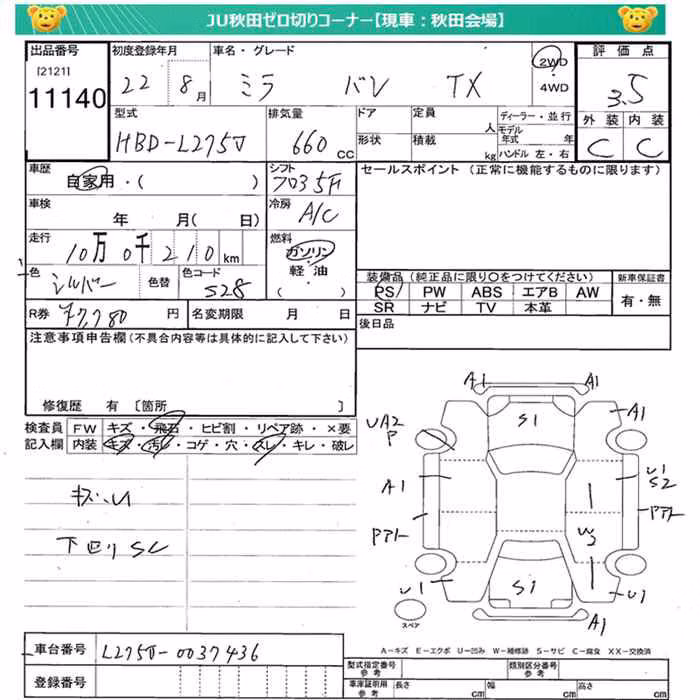 JU秋田ゼロ切りコーナー【現車：秋田会場】
出品番号 初度登録年月 車名・グレード 2WD 評価点
[2121] 22 8月 ミラ バン TX ・ 3.5
11140 4WD
型式 排気量 ドア 定員 ディーラー・並行 外装 内装
HBD-L275V 660cc 人 モデル年式 年 C C
形状 積載 kg ハンドル 左・右
車歴 シフト セールスポイント (正常に機能するものに限ります)
自家用・( ) フロア5F
車検 冷房
年 月(日) A/C
走行 燃料
10万0千210km ガソリン
色 色替 色コード ・軽油
シルバー 528 ( )
装備品(純正品に限り○をつけてください) 新車保証書
PS PW ABS エアB AW 有・無
SR ナビ TV 本革
R券 ¥7,780円 名変期限 月 日 後日品
注意事項申告欄(不具合内容等は具体的に記入して下さい)
修復歴 有 〔箇所 〕
検査員 FW キズ・飛石・ヒビ割・リペア跡・×要
記入欄 内装 キズ・汚レ・コゲ・穴・スレ・キレ・破レ
キズ・U
下回りSC
A1 A1
S1 A1
UA2
P
A1 U1
S2
Pアト Pアト
W2
U1 S1 U1
A1
スペア
A－キズ E－エクボ U－凹み W－補修跡 S－サビ C－腐食 XX－交換済
車台番号 L275V-0037436
登録番号
型式指定番号 参考 類別区分番号 参考
車庫証明用 参考 長さ cm 幅 cm 高さ cm